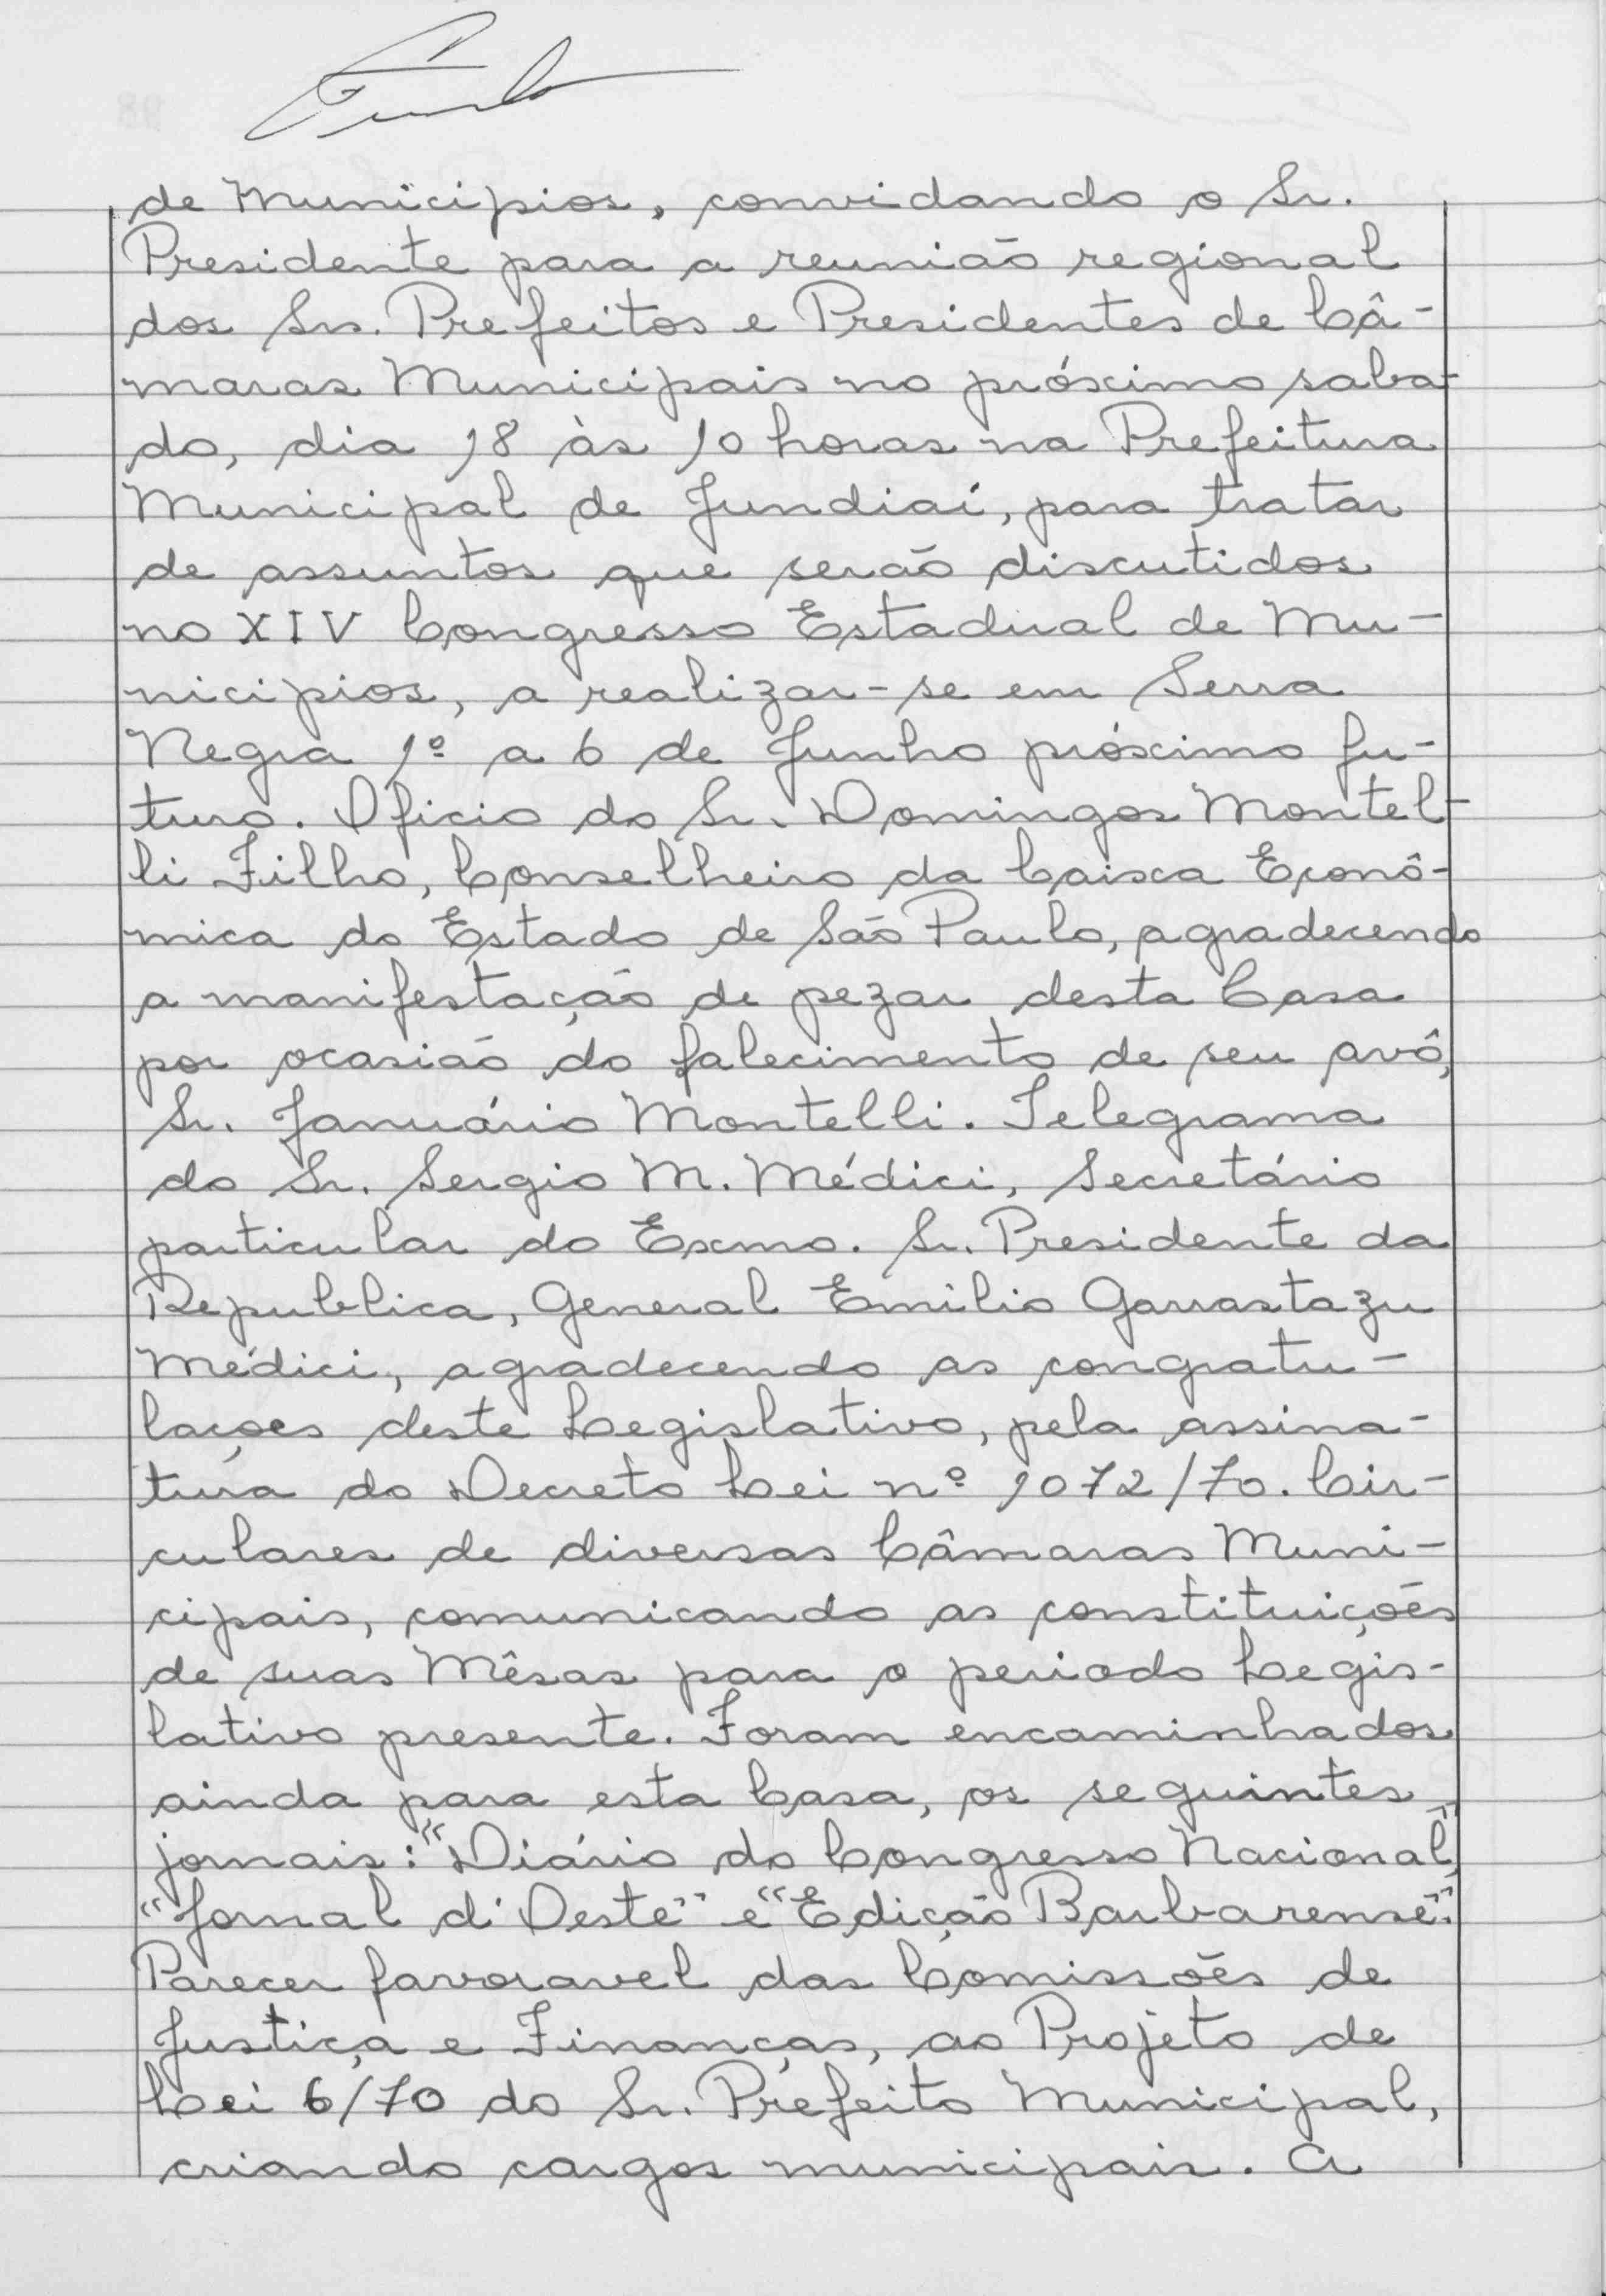 de Municipios, convidando o Sr.
Presidente para a reunião regional
dos Srs. Prefeitos e Presidentes de Câ-
maras Municipais no próximo saba-
do, dia 18 às 10 horas na Prefeitura
Municipal de Jundiaí, para tratar
de assuntos que serão discutidos
no XIV Congresso Estadual de Mu-
nicipios, a realizar-se em Serra
Negra 1º a 6 de Junho próximo fu-
turo. Oficio do Sr. Domingos Montel-
li Filho, Conselheiro da Caixa Econô-
mica do Estado de São Paulo, agradecendo
a manifestação de pezar desta Casa
por ocasião do falecimento de seu avô,
Sr. Januário Montelli. Telegrama
do Sr. Sergio M. Médici, Secretário
particular do Exmo. Sr. Presidente da
Republica, General Emilio Garrastazu
Médici, agradecendo as congratu-
laçoes deste Legislativo, pela assina-
tura do Decreto Lei nº 1072/70. Cir-
culares de diversas Câmaras Muni-
cipais, comunicando as constituições
de suas Mêsas para o periodo Legis-
lativo presente. Foram encaminhados
ainda para esta Casa, os seguintes
jornais: "Diário do Congresso Nacional",
"Jornal d'Oeste" e "Edição Barbarense".
Parecer favoravel das Comissões de
Justiça e Finanças, ao Projeto de
Lei 6/70 do Sr. Prefeito Municipal,
criando cargos municipais. A